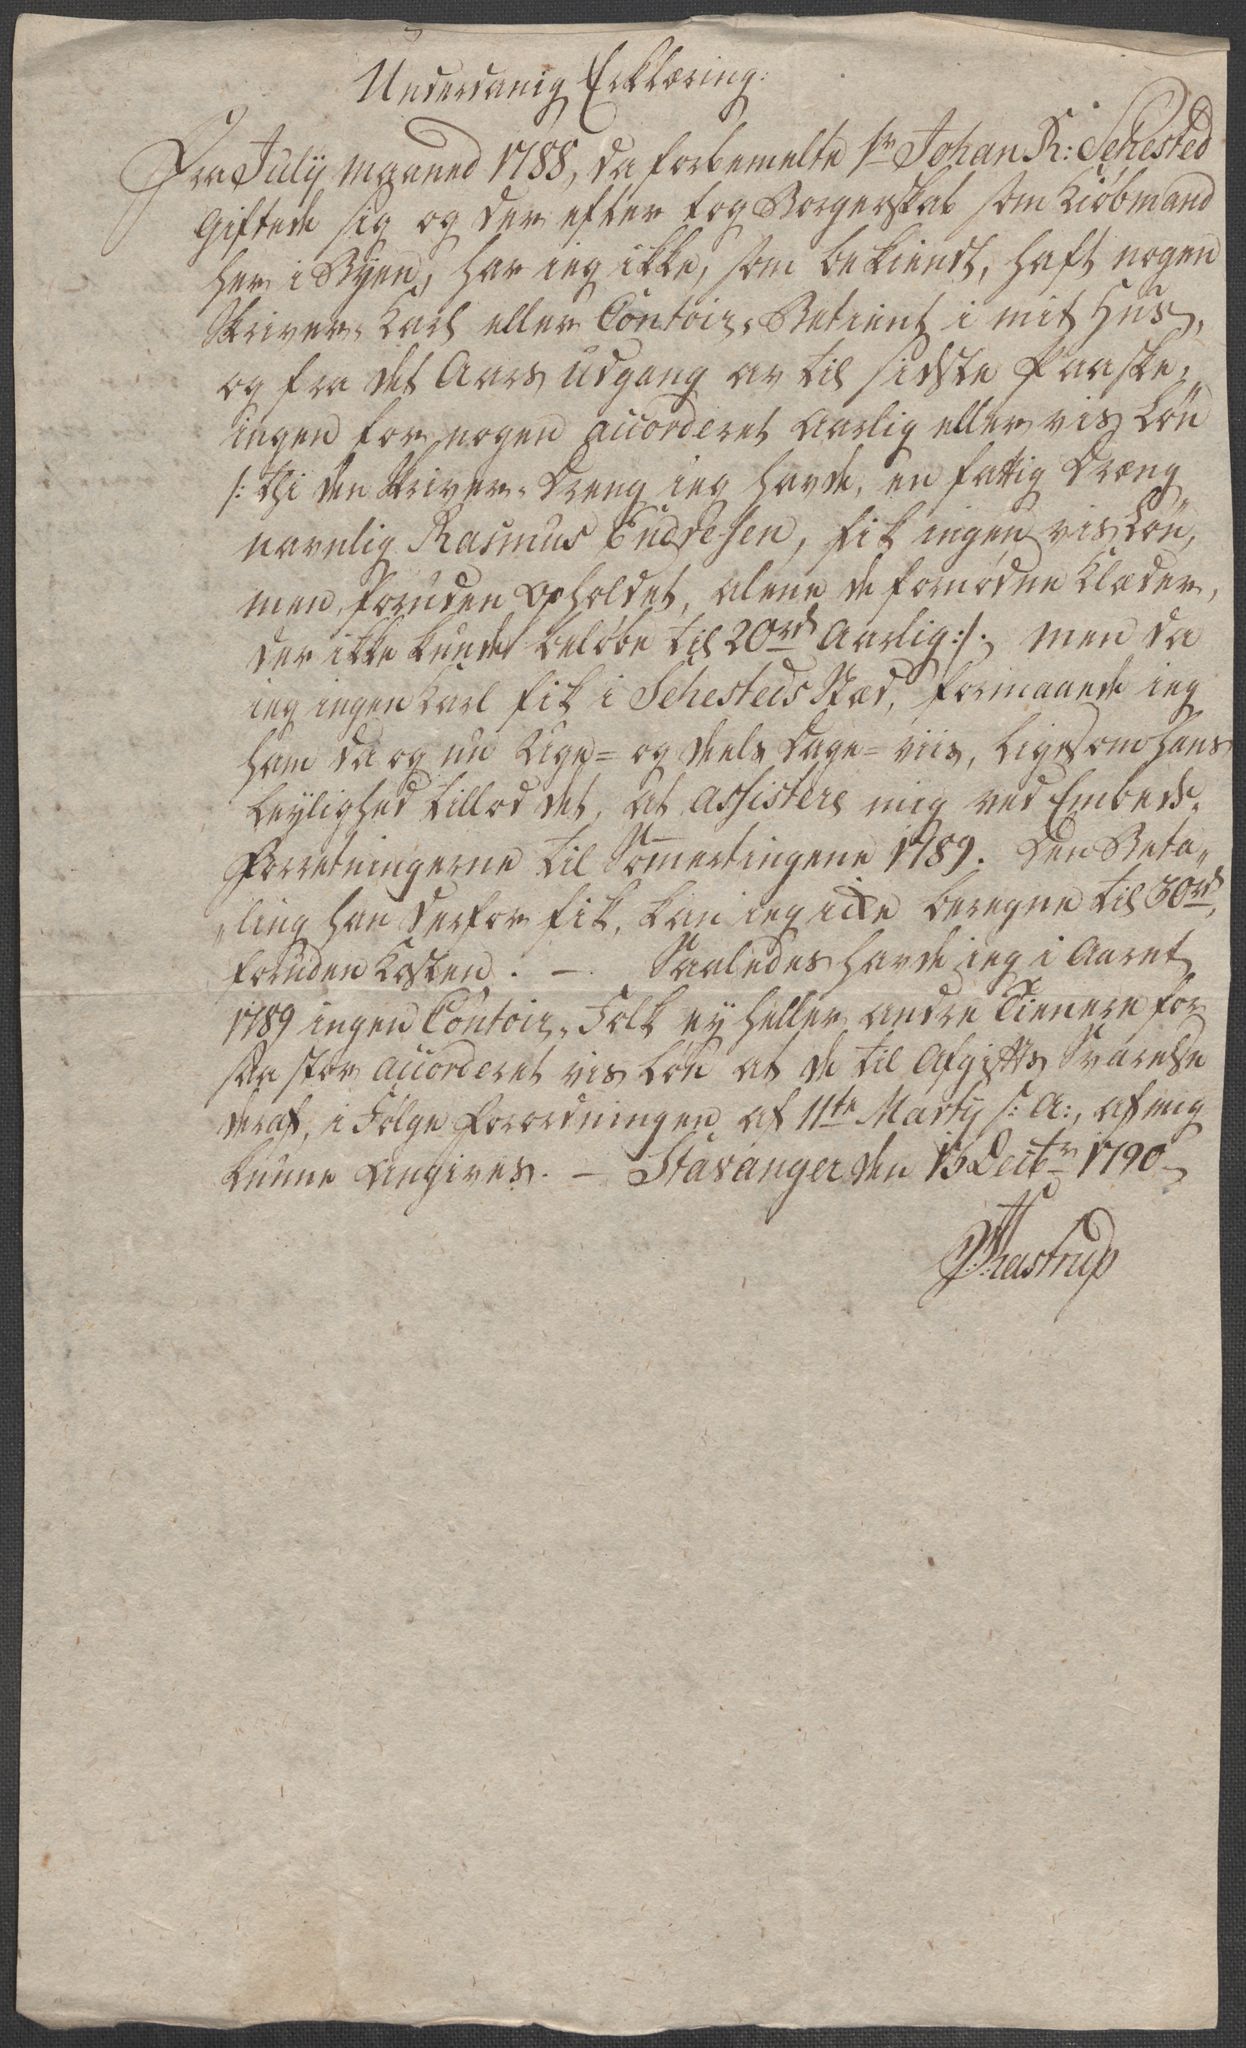 Underdanig Erklæring:
Fra July maaned 1788, da forbemelte Sr Johan K: Sehested
Giftede sig og der efter tog Borgerskab som Kiøbmand
her i Byen, har ieg ikke, som bekiendt, haft nogen
Skriver-Karl eller Contoir-Betient i mit Huus,
og fra det Aars Udgang av til sidste Paaske,
ingen for nogen accorderet aarlig eller vis Løn
/: thi den Skriver-Dreng ieg havde, en fattig Dræng
navnlig Rasmus Endresen, fik ingen vis Løn,
men, foruden Opholdet, alene de fornødne Klæder,
der ikke kunde beløbe til 20rd Aarlig :/. men da
ieg ingen Karl fik i Sehesteds Stæd, formaaede ieg
ham da og nu Uge= og deels Dage=viis, ligesom hans
Leylighed tillod det, at assistere mig ved Embeds-
Forretningerne til Somertingene 1789. Den Beta-
ling han derfor fik, kan ieg icke beregne til 30rd,
foruden Kosten. — Saaledes havde ieg i Aaret
1789 ingen Contoir-Folk ey heller andre Tienere for
saa stor accorderet vis Løn at de til Afgifts Svarelse
deraf, i Følge Forordningen af 11te Marty s: A:, af mig
kunne Angives. — Stavanger den 13 Decbr 1790
Khastrup